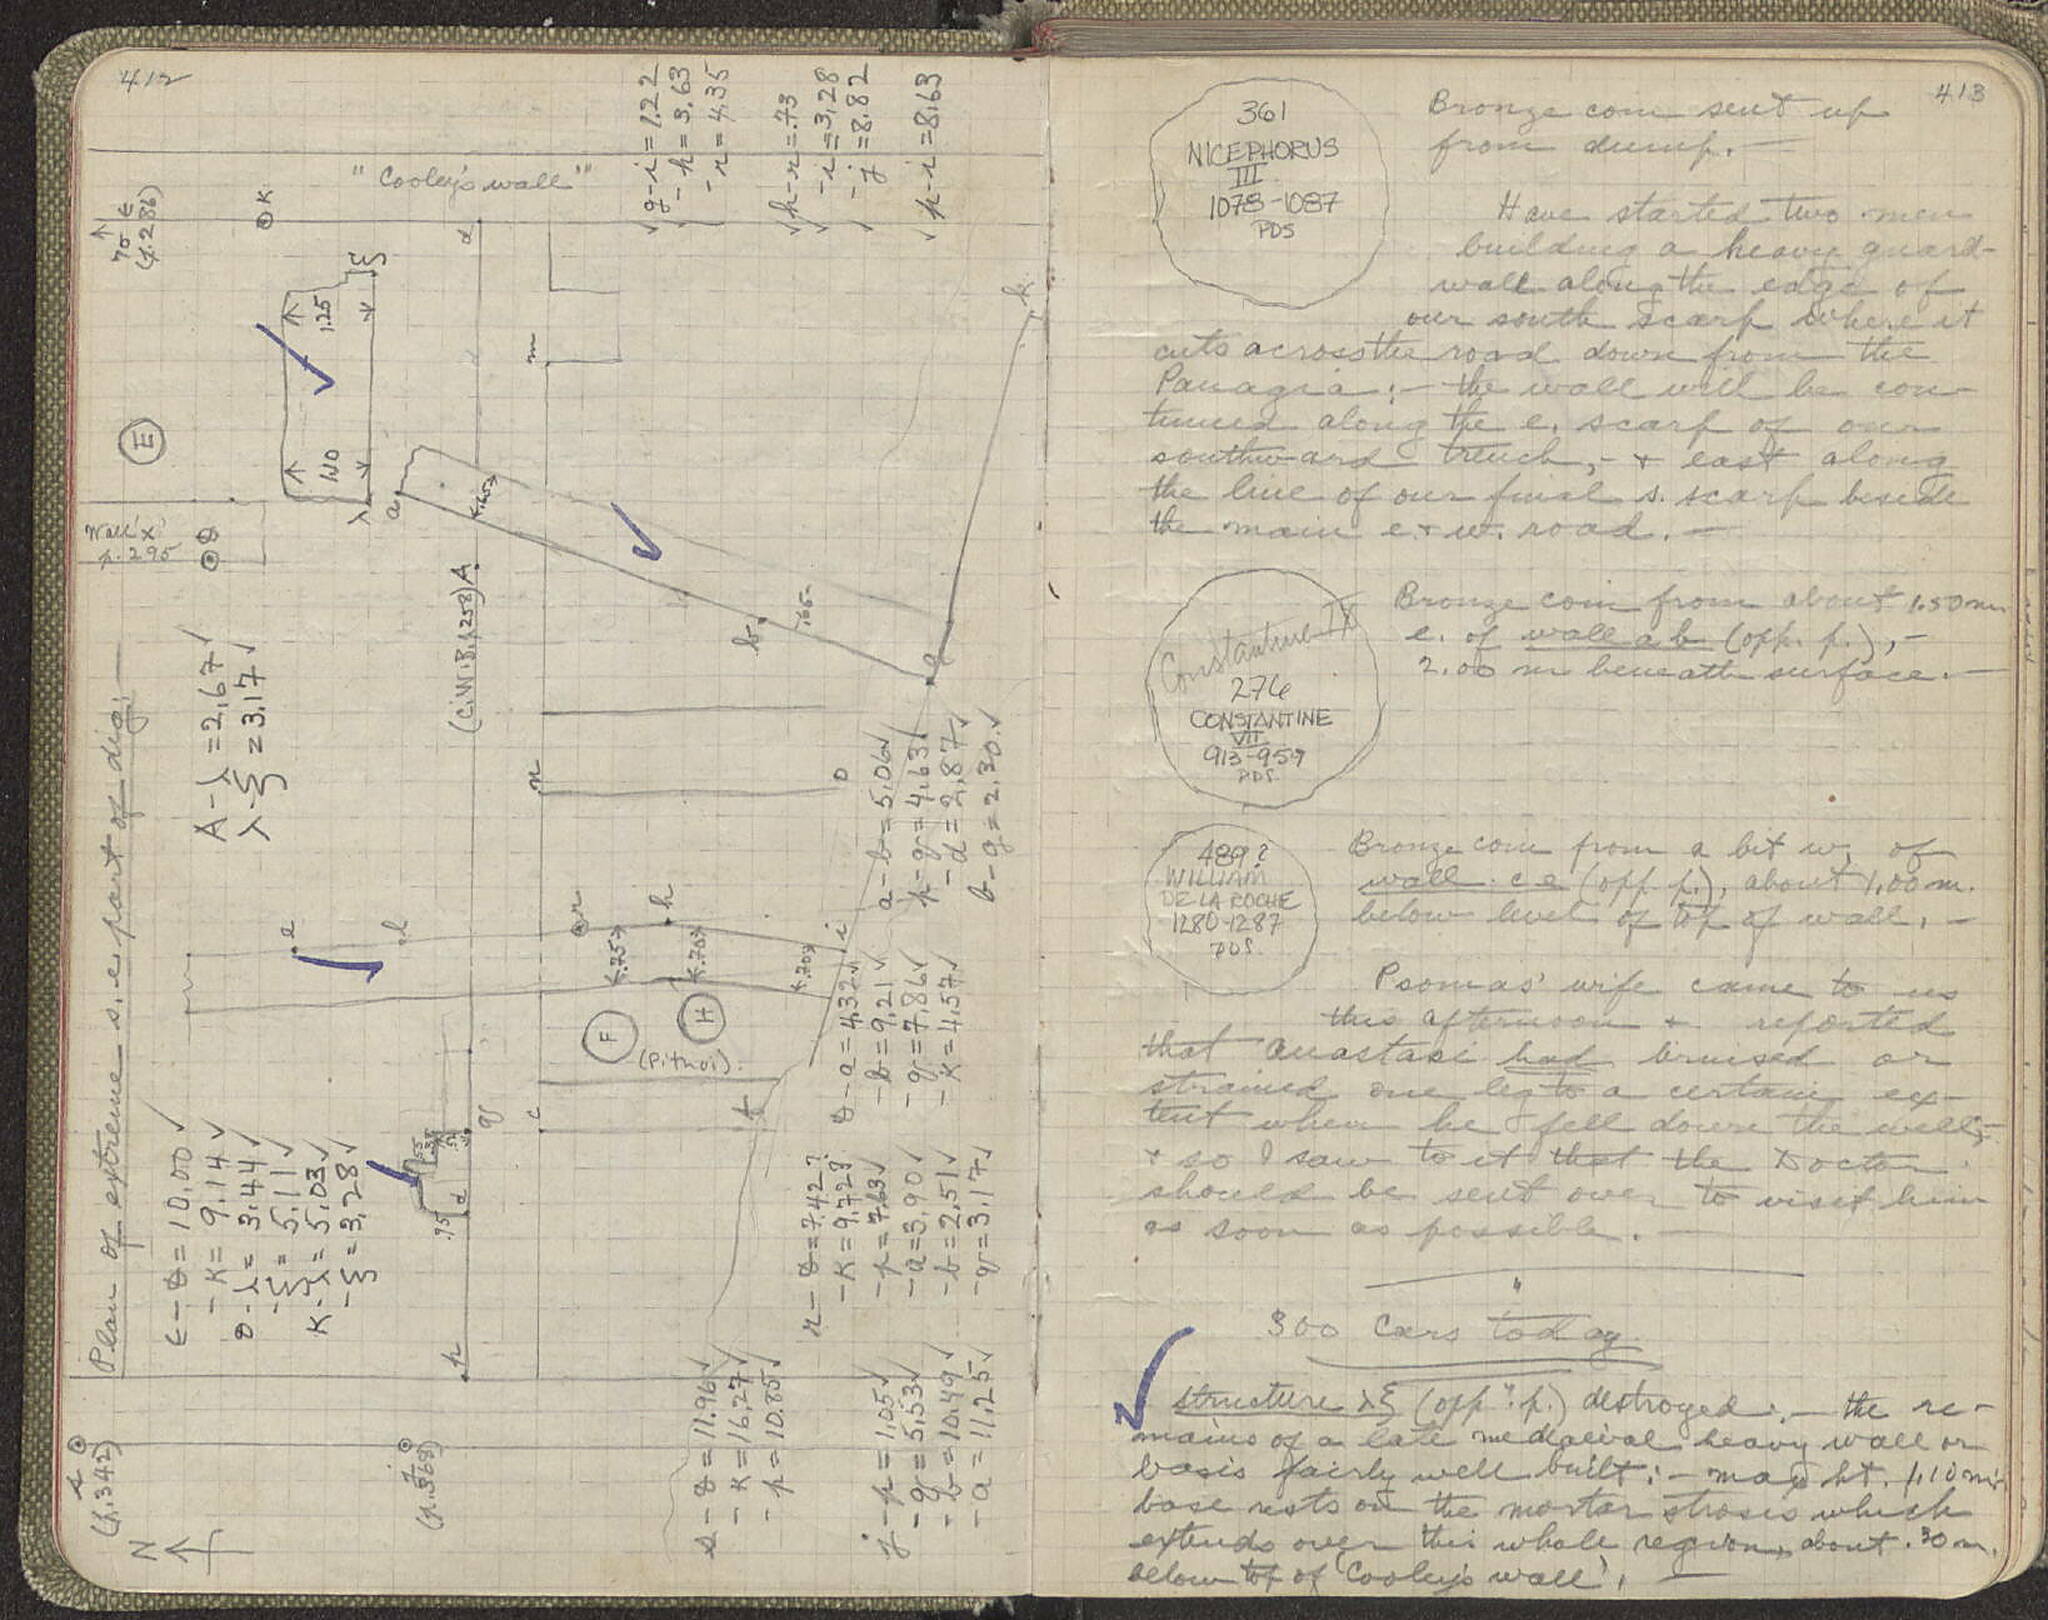 412
Plan of extreme s.e. part of dig:—
N
s
(p.342)
(p.368)
Wall 'X'
p.295
E
(p.286)
K
"Cooley's wall"
(C.W.B.p.258) A
F
H
(Pithoi)
ε-θ = 10.00 ✓
-K = 9.14 ✓
θ-λ = 3.44 ✓
-ξ = 5.11 ✓
K-λ = 5.03 ✓
-ξ = 3.28 ✓
A-λ = 2.67 ✓
λ-ξ = 3.17 ✓
1.10
1.25
.75
.65
.65
.75
.70
.70
s-θ = 11.96 ✓
-K = 16.27 ✓
-p = 10.85 ✓
j-p = 1.05 ✓
-q = 5.53 ✓
-b = 10.49 ✓
-a = 11.25 ✓
r-θ = 7.42?
-K = 9.72?
-p = 7.63 ✓
-a = 3.90 ✓
-b = 2.51 ✓
-q = 3.17 ✓
θ-a = 4.32 ✓
-b = 9.21 ✓
-q = 7.86 ✓
-K = 4.57 ✓
a-b = 5.06 ✓
p-q = 4.63 ✓
-d = 2.87 ✓
b-g = 2.30 ✓
g-i = 1.22
-h = 3.63
-r = 4.35
h-r = .73
-i = 3.28
-j = 8.82
p-i = 8.63
413
361
NICEPHORUS
III
1078-1087
PDS
Bronze coin sent up
from dump. —
Have started two men
building a heavy guard-
wall along the edge of
our south scarp where it
cuts across the road down from the
Panagia: — the wall will be con-
tinued along the e. scarp of our
southward trench, - + east along
the line of our final s. scarp beside
the main e. + w. road. —
Constantine IX
276
CONSTANTINE
VII
913-959
PDS.
Bronze coin from about 1.50 m
e. of wall a b (opp. p.), —
2.00 m beneath surface. —
489?
WILLIAM
DE LA ROCHE
1280-1287
PDS.
Bronze coin from a bit w. of
wall c e (opp. p.), about 1.00 m.
below level of top of wall. —
Psomas' wife came to us
this afternoon + reported
that Anastasi had bruised or
strained one leg to a certain ex-
tent when he fell down the well; -
+ so I saw to it that the Doctor
should be sent over to visit him
as soon as possible. —
300 Cars today
Structure λξ (opp. p.) destroyed: — the re-
mains of a late mediaeval heavy wall or
basis fairly well built: — max ht. 1.10 m:
base rests on the mortar strosis which
extends over this whole region, about .30 m.
below top of 'Cooley's wall'. —